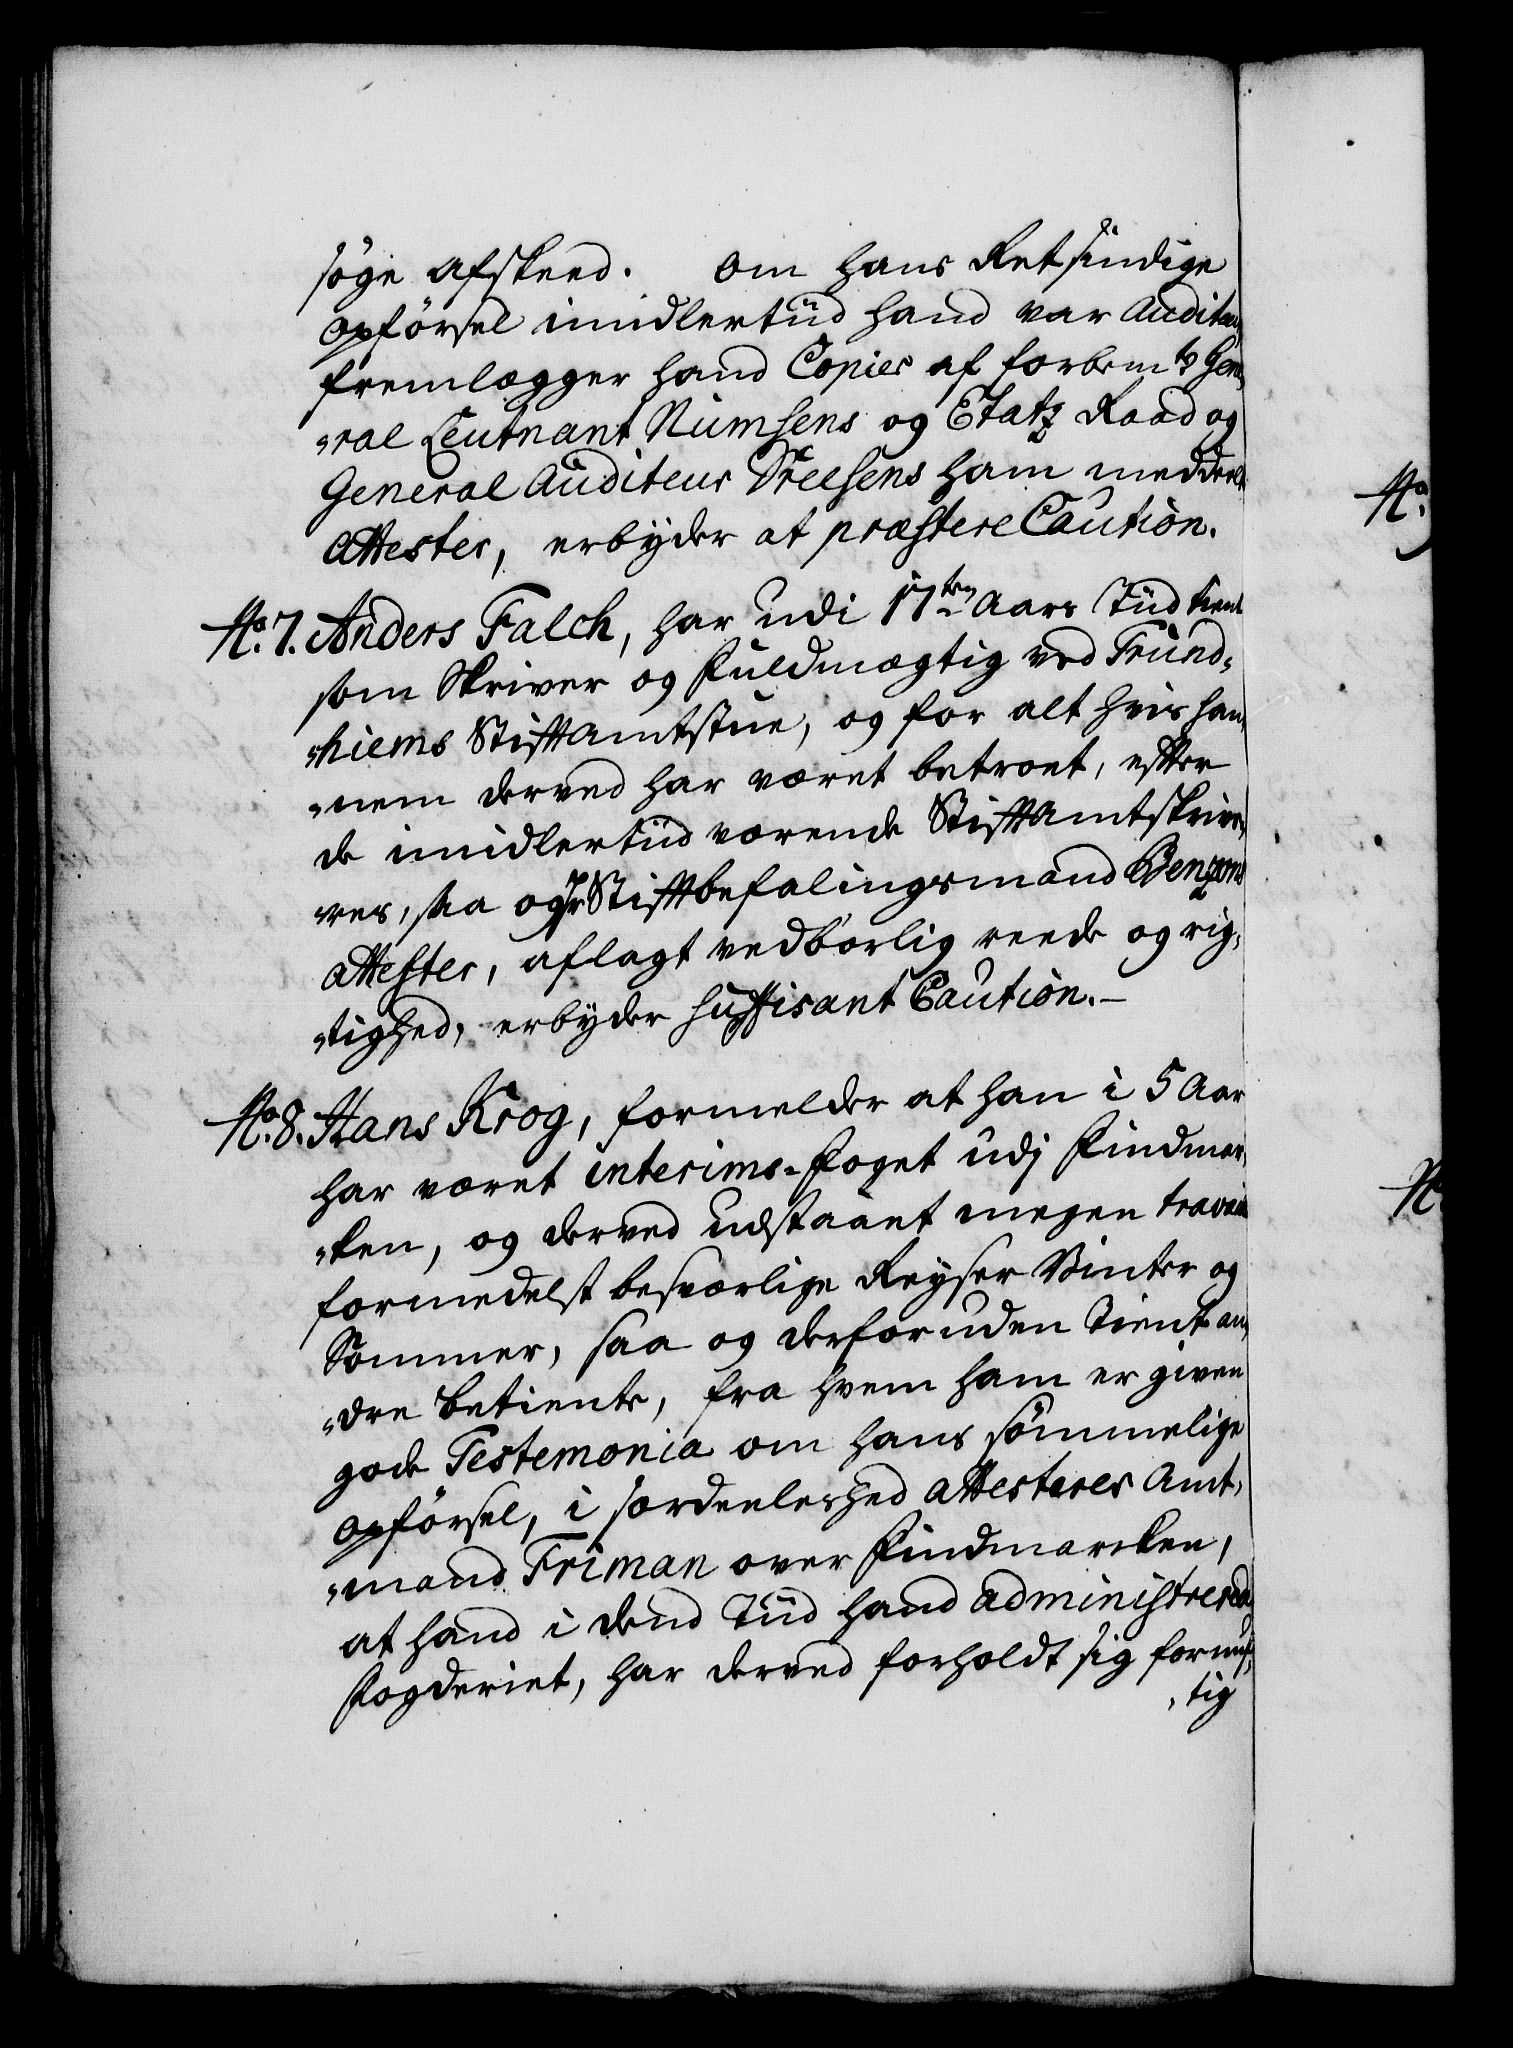 söge afskeed. Om hans Retsindige
Opförsel imidlertiid hand var Auditeur,
fremlægger hand Copier af forbemte Gene,
„ral Leutnant Numsens og Etatz Raad og
General Auditeur Steesens ham meddeelte
Attester, erbyder at præstere Caution.
No. 7. Anders Falch, har udi 17ten Aars Tiid tient
som Skriver og Fuldmægtig ved Trund„
„hiems Stiftamtstue, og for alt hvis han,
„nem derved har været betroet, efter
de imidlertiid værende Stiftamtskrive,
„res, saa og Hr Stiftbefalingsmand Benzons
attester, aflagt vedbörlig reede og rig,
„tighed, erbyder suffisant Caution.–
No. 8. Hans Krog, formelder at han i 5 Aar
har været interims-Foget udj Findmar,
„ken, og derved udstaaet megen travaille
formedelst besværlige Reyser Vinter og
Sommer, saa og derforuden Tient an,
„dre betiente, fra hvem ham er given
gode Testemonia om hans sömmelige
Opförsel, i særdeeleshed attesterer Amt,
„mand Friman over Findmarcken,
at hand i dend Tiid hand administrerede
Fogderiet, har derved forholdt sig fornuf,
„tig
No.
No